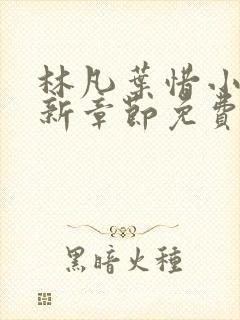 林凡葉惜小
新章節免費
黑暗火種